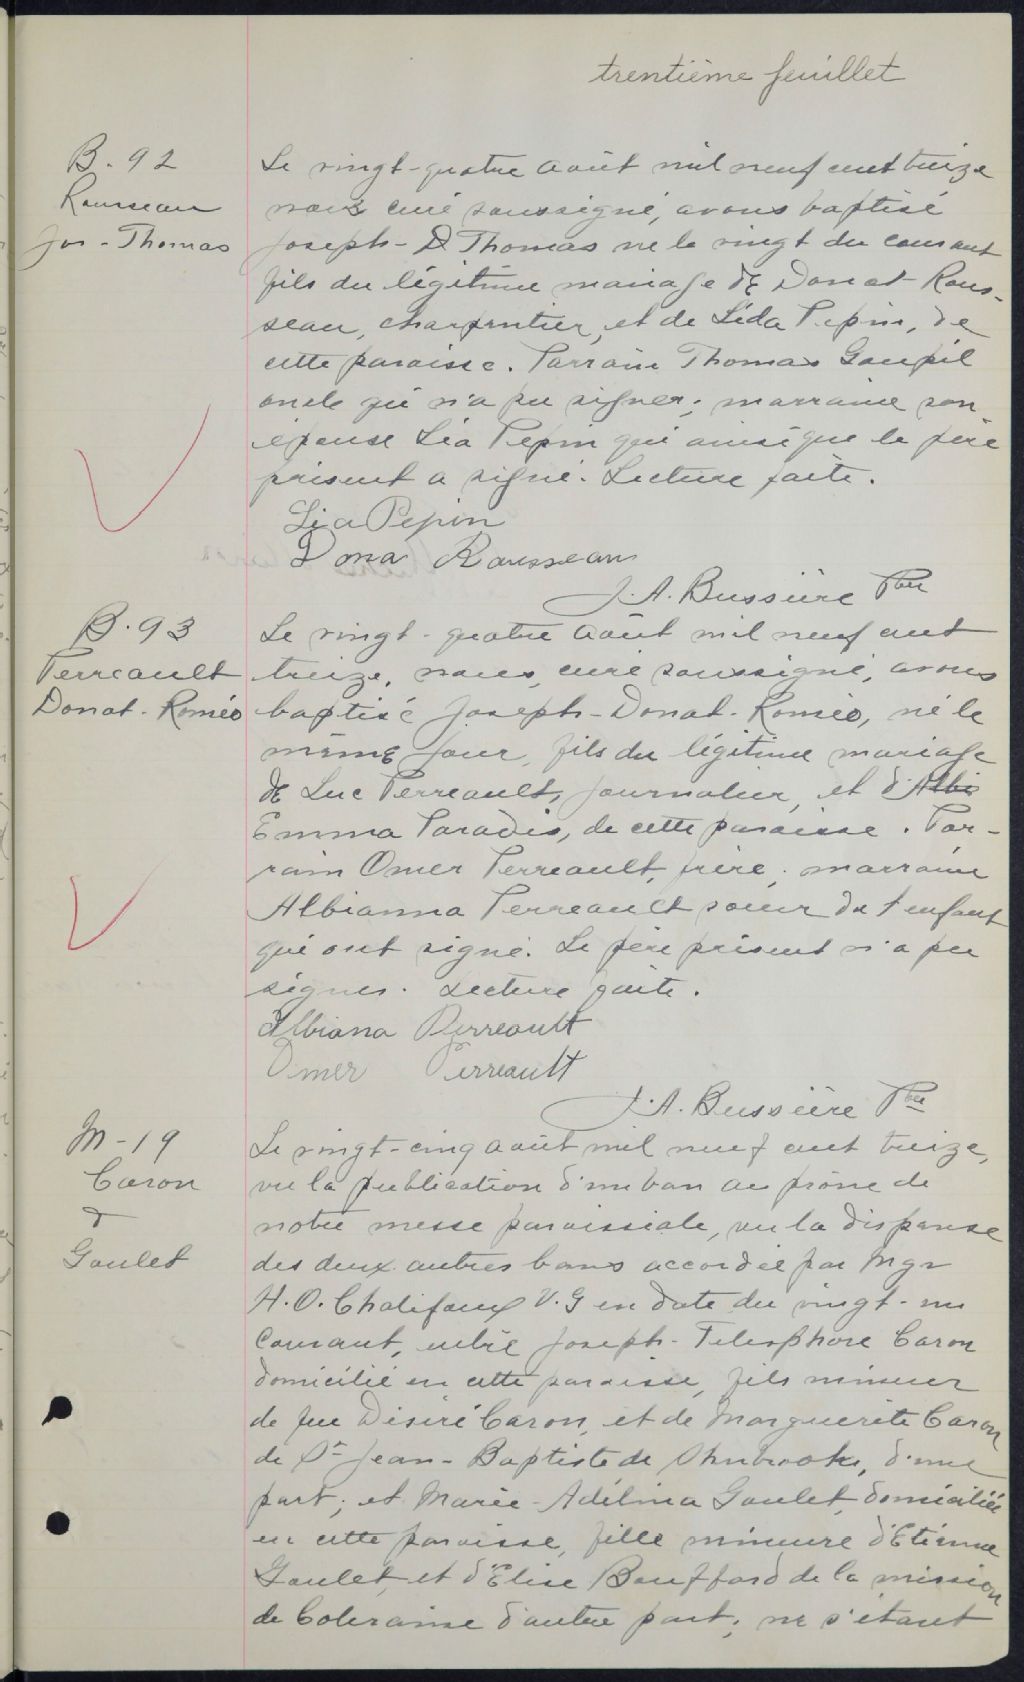 trentième feuillet
B. 92
Rousseau
Jos - Thomas
Le vingt-quatre août mil neuf cent treize
nous curé soussigné, avons baptisé
Joseph - Thomas né le vingt du courant
fils du légitime mariage de Donat Rous-
seau, charpentier, et de Léda Pepin, de
cette paroisse. Parrain Thomas Goupil
oncle qui n'a pu signer; marraine son
épouse Léa Pepin qui ainsi que le père
présent a signé. Lecture faite.
Léa Pepin
Dona Rousseau
J. A. Bussière Ptre
B. 93
Perreault
Donat - Roméo
Le vingt-quatre août mil neuf cent
treize, nous, curé soussigné, avons
baptisé Joseph - Donat - Roméo, né le
même jour, fils du légitime mariage
de Luc Perreault, journalier, et d'Albi
Emma Paradis, de cette paroisse. Par-
rain Omer Perreault, frère; marraine
Albianna Perreault soeur de l'enfant
qui ont signé. Le père présent n'a pu
signer. Lecture faite.
Albiana Perreault
Omer Perreault
J. A. Bussière Ptre
M - 19
Caron
&
Goulet
Le vingt-cinq août mil neuf cent treize,
vu la publication d'un ban au prône de
notre messe paroissiale, vu la dispense
des deux autres bans accordée par Mgr
H. O. Chalifoux V. G en date du vingt-un
courant, entre Joseph - Telesphore Caron
domicilié en cette paroisse, fils mineur
de feu Désiré Caron, et de Marguerite Caron
de St Jean - Baptiste de Sherbrooke, d'une
part; et Marie - Adélina Goulet, domiciliée
en cette paroisse, fille mineure d'Etienne
Goulet, et d'Elise Bouffard de la mission
de Coleraine d'autre part; ne s'étant